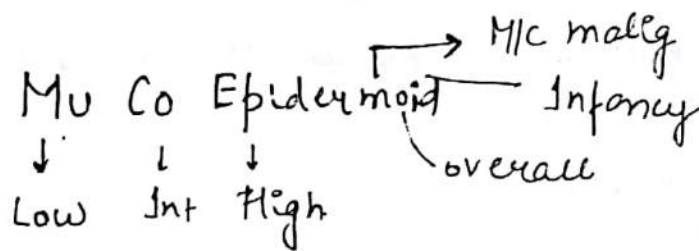 M/c mallg
Mu Co Epidermoid Infancy
overall
Low Int High